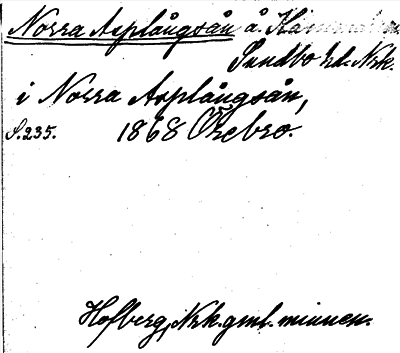 Norra Asplångsån å. Hammars sn.
Sundbo hd. Nrk.
i Norra Asplångsån,
S. 235. 1868 Örebro.
Hofberg, Nrk. gml. minnen.